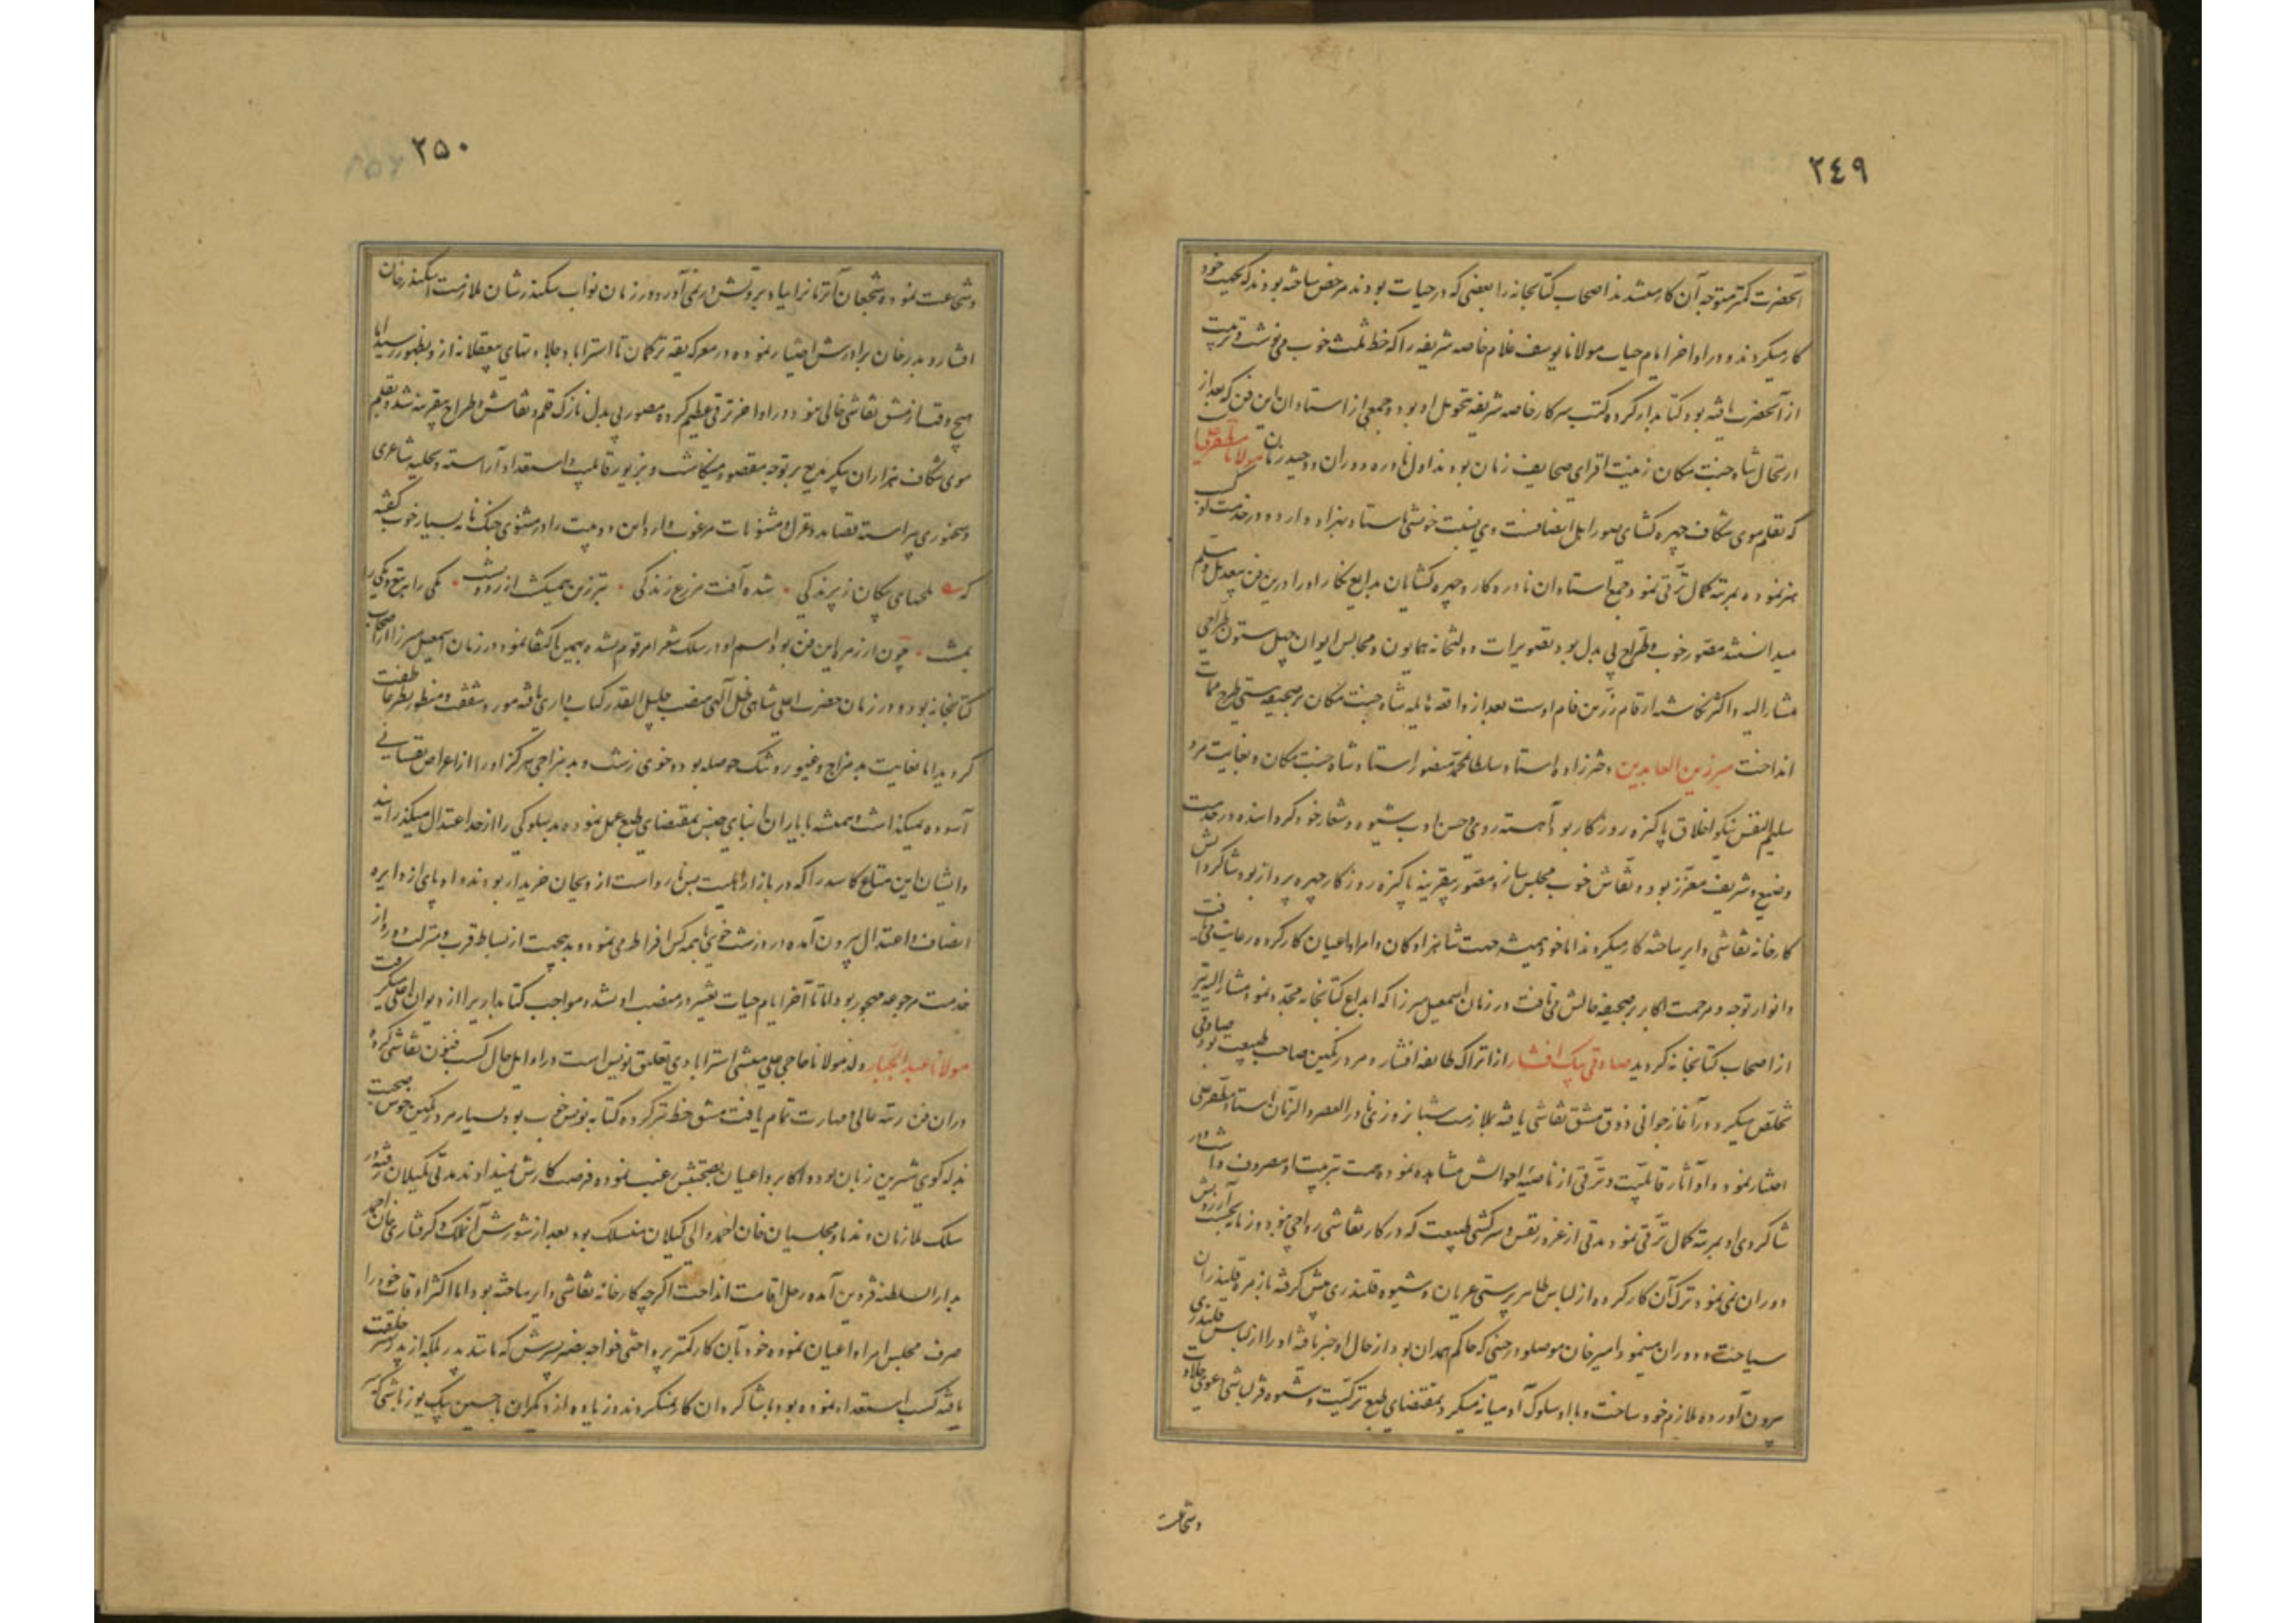 ٢٤٩
آنحضرت کمتر متوجه آن کار میشدند اصحاب کتابخانه را بعضی که در حیات بودند مرخص ساخته بودند که بجهت خود
کار میکردند و در اواخر ایام حیات مولانا یوسف غلام خاصه شریفه را که خط ثلث خوب می نوشت و تربیت
از آنحضرت یافته بود کتابدار کرده کتب سرکار خاصه شریفه تحویل او بود و جمعی از استادان این فن که بعد از
ارتحال شاه جنت مکان زینت افزای صحایف زمان بودند اول نادره دوران و وحید زمان مولانا مظفر علی
که بقلم موی شکاف چهره گشای صور اهل انصافست وی نسبت خویشی باستاد بهزاد دارد و در خدمت او کسب
هنر نموده بمرتبه کمال ترقی نمود جمیع استادان نادره کار و چهره گشایان بدایع نگار او را درین فن بیعدیل و مسلم
میدانستند مصور خوب و طراح بی بدل بود تصویرات دولتخانه همایون و مجالس ایوان چهل ستون طراحی
مشار الیه و اکثر نگاشته ارقام زرین فام اوست بعد از واقعه هایله شاه جنت مکان بر صحیفه هستی طرح ممات
انداخت میر زین العابدین دخترزاده استاد سلطان محمد مصور استاد شاه جنت مکان و بغایت مرد
سلیم النفس نیکو اخلاق پاکیزه روزگار بود آهسته روی و حسن ادب شیوه و شعار خود گردانیده در خدمت
وضیع و شریف معزز بود و نقاش خوب مجلس ساز و مصور بیقرینه پاکیزه روزگار چهره پرداز بود شاگردانش
کارخانه نقاشی دایر ساخته کار میکردند اما خود همیشه جهت شاهزادکان و امرا و اعیان کار کرده رعایت می یافت
و انوار توجه و مرحمت اکابر بر صحیفه حالش می تافت در زمان اسمعیل میرزا که ابداع کتابخانه مجدد نمود مشار الیه نیز
از اصحاب کتابخانه گردید صادقی بیک افشار از اتراک طایفه افشار و مرد رنگین صاحب طبیعت بود صادقی
تخلص میکرد در آغاز جوانی ذوق مشق نقاشی یافته بملازمت شبانروزی نادر العصر و الزمان استاد مظفر علی
اختیار نمود و او آثار قابلیت و ترقی از ناصیه احوالش مشاهده نموده همت بتربیت او مصروف داشت و در
شاگردی او بمرتبه کمال ترقی نمود مدتی از غرور نفس و سرکشی طبیعت که در کار نقاشی رواجی نبود و زمانه بحسب آرزویش
دوران نمی نمود ترک آن کار کرده از لباس ظاهر پرستی عریان و شیوه قلندری پیش گرفته با زمره قلندران
سیاحت و دوران مینمود امیر خان موصلو در حینی که حاکم همدان بود از حال او خبر یافته او را از لباس قلندری
بیرون آورده ملازم خود ساخت و با او سلوک آدمیانه میکرد بمقتضای طبع ترکیت و شیوه قزلباشی دعوی جلادت
وشجاعت
٢٥٠
و شجاعت نموده شجعان آنزمانرا بیاد بروتش در نمی آورد و در زمان نواب سکندر شان ملازمت اسکندر خان
افشار و بدر خان برادرش اختیار نموده در معرکه یقه ترکمان تا استراباد جلادتهای بیعقلانه ازو بظهور رسید اما
هیچ وقت از مشق نقاشی خالی نبود در اواخر ترقی عظیم کرده مصور بی بدل نازک قلم و نقاش و طراح بیقرینه شد و بقلم
موی شکاف هزاران پیکر بدیع بر توجه مقصود مینگاشت و بزیور قابلیت و استعداد آراسته و بحلیه شاعری
و سخنوری پیراسته قصاید و غزل و مثنویات مرغوب دارد این دو بیت را در مثنوی جنک نامه بسیار خوب گفته
که تلخهای پیکان ز پرندگی شده آفت مزرع زندگی تبرزین همیکشت از رو و پشت یکی را بتیغ و یکی را
بمشت چون از زمره این فن بود اسم او در سلک شعرا مرقوم نشده بهمین اکتفا نمود در زمان اسمعیل میرزا از اصحاب
کتابخانه بود و در زمان حضرت اعلی شاهی ظل اللهی منصب جلیل القدر کتاب داری یافته مورد شفقت و منظور نظر عاطفت
گردید اما بغایت بد مزاج و غیور و تنک حوصله بود و خوی زشت و بد مزاجی هرگز او را از اعراض نفسانی
آسوده نمیگذاشت و همیشه با یاران و ابنای جنس بمقتضای طبع عمل نموده بد سلوکی را از حد اعتدال میگذرانید
و ایشان این متاع کاسد را که در بازار اهلیت بس نارواست از و بجان خریدار بودند و او پای از دایره
انصاف و اعتدال بیرون آمده در درشت خویی با همه کس افراط می نمود و بدین جهت از بساط قرب و منزلت دور و از
خدمت مرجوعه مهجور بود اما تا آخر ایام حیات تغییر در منصب او نشد و مواجب کتابداریرا از دیوان اعلی میگرفت
مولانا عبد الجبار ولد مولانا حاجی علی منشی استرابادی تعلیق نویس است در اوایل حال کسب فنون نقاشی کرده
در آن فن رتبه عالی و مهارت تمام یافت مشق خط نیز کرده کتابه نویس خوب بود بسیار مرد رنگین خوش صحبت
بذله گوی شیرین زبان بود و اکابر و اعیان بصحبتش رغبت نموده فرصت کارش نمیدادند مدتی بگیلان رفته در
سلک ملازمان و ندما و مجلسیان خان احمد والی گیلان منسلک بود بعد از شورش آنملک و گرفتاری خان احمد
بدار السلطنه قزوین آمده رحل اقامت انداخت اگرچه کارخانه نقاشی دایر ساخته بود اما اکثر اوقات خود را
صرف مجلس امرا و اعیان نموده خود بآن کار کمتر پرداختی خواجه نصیر پسرش که مانند پدر بلکه از پدر بیشتر خلقت
یافته کسب استعداد نموده بود با شاگردان کار میکردند و زیاده از دیگران با حسین بیک یوزباشی که